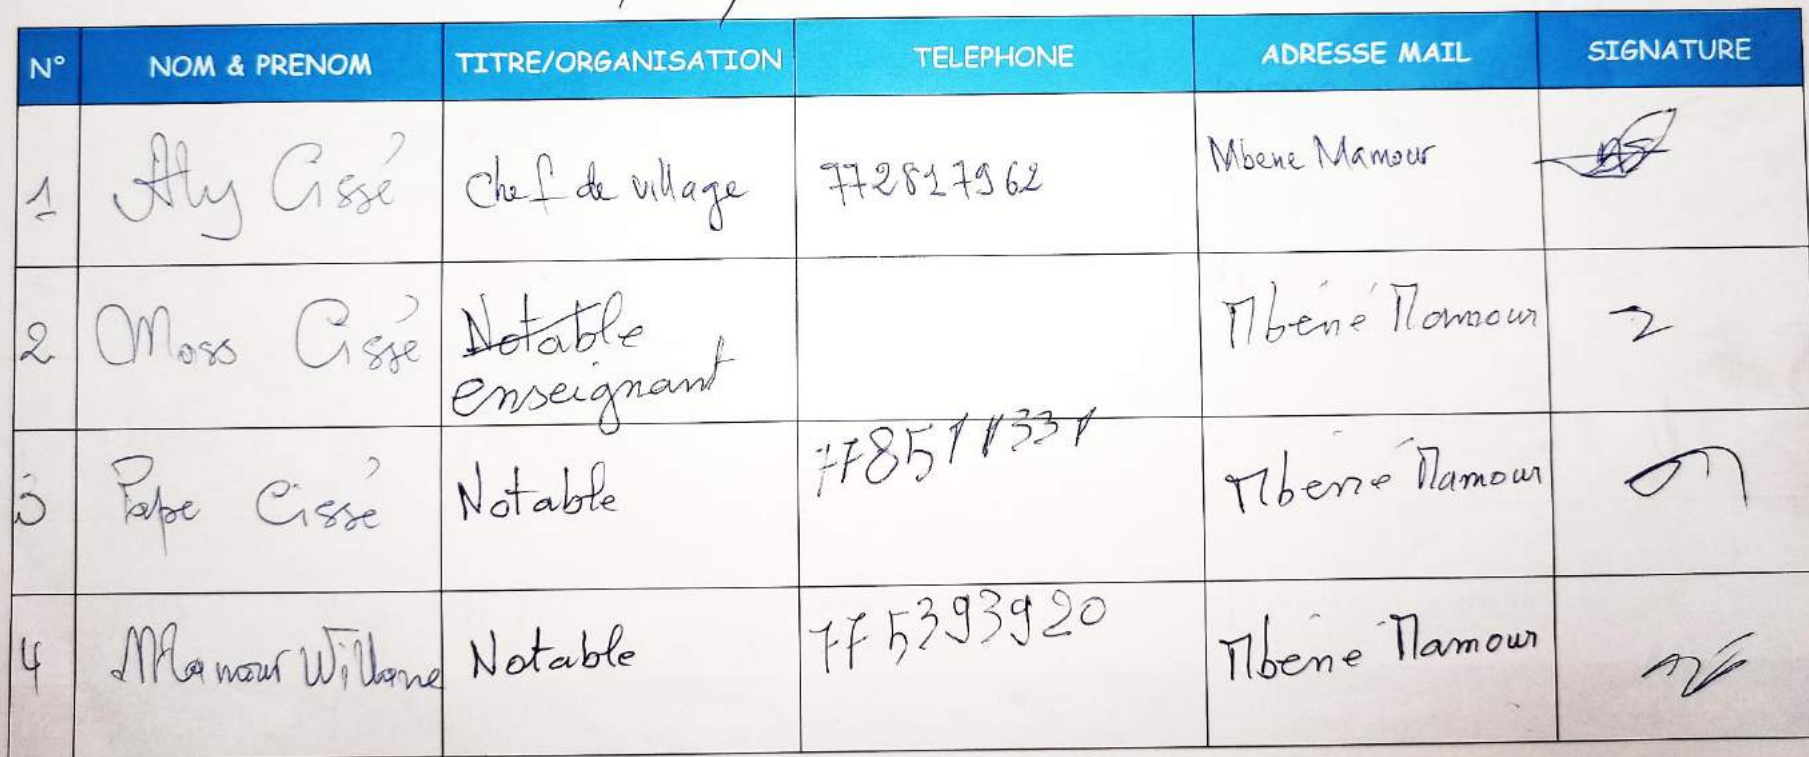 N° NOM & PRENOM TITRE/ORGANISATION TELEPHONE ADRESSE MAIL SIGNATURE
1 Aly Cissé Chef de village 772817962 Mbene Mamour
2 Moss Cissé Notable Mbéné Mamour
enseignant
3 Pape Cissé Notable 778511331 Mbene Mamour
4 Mamour Willane Notable 775393920 Mbene Mamour